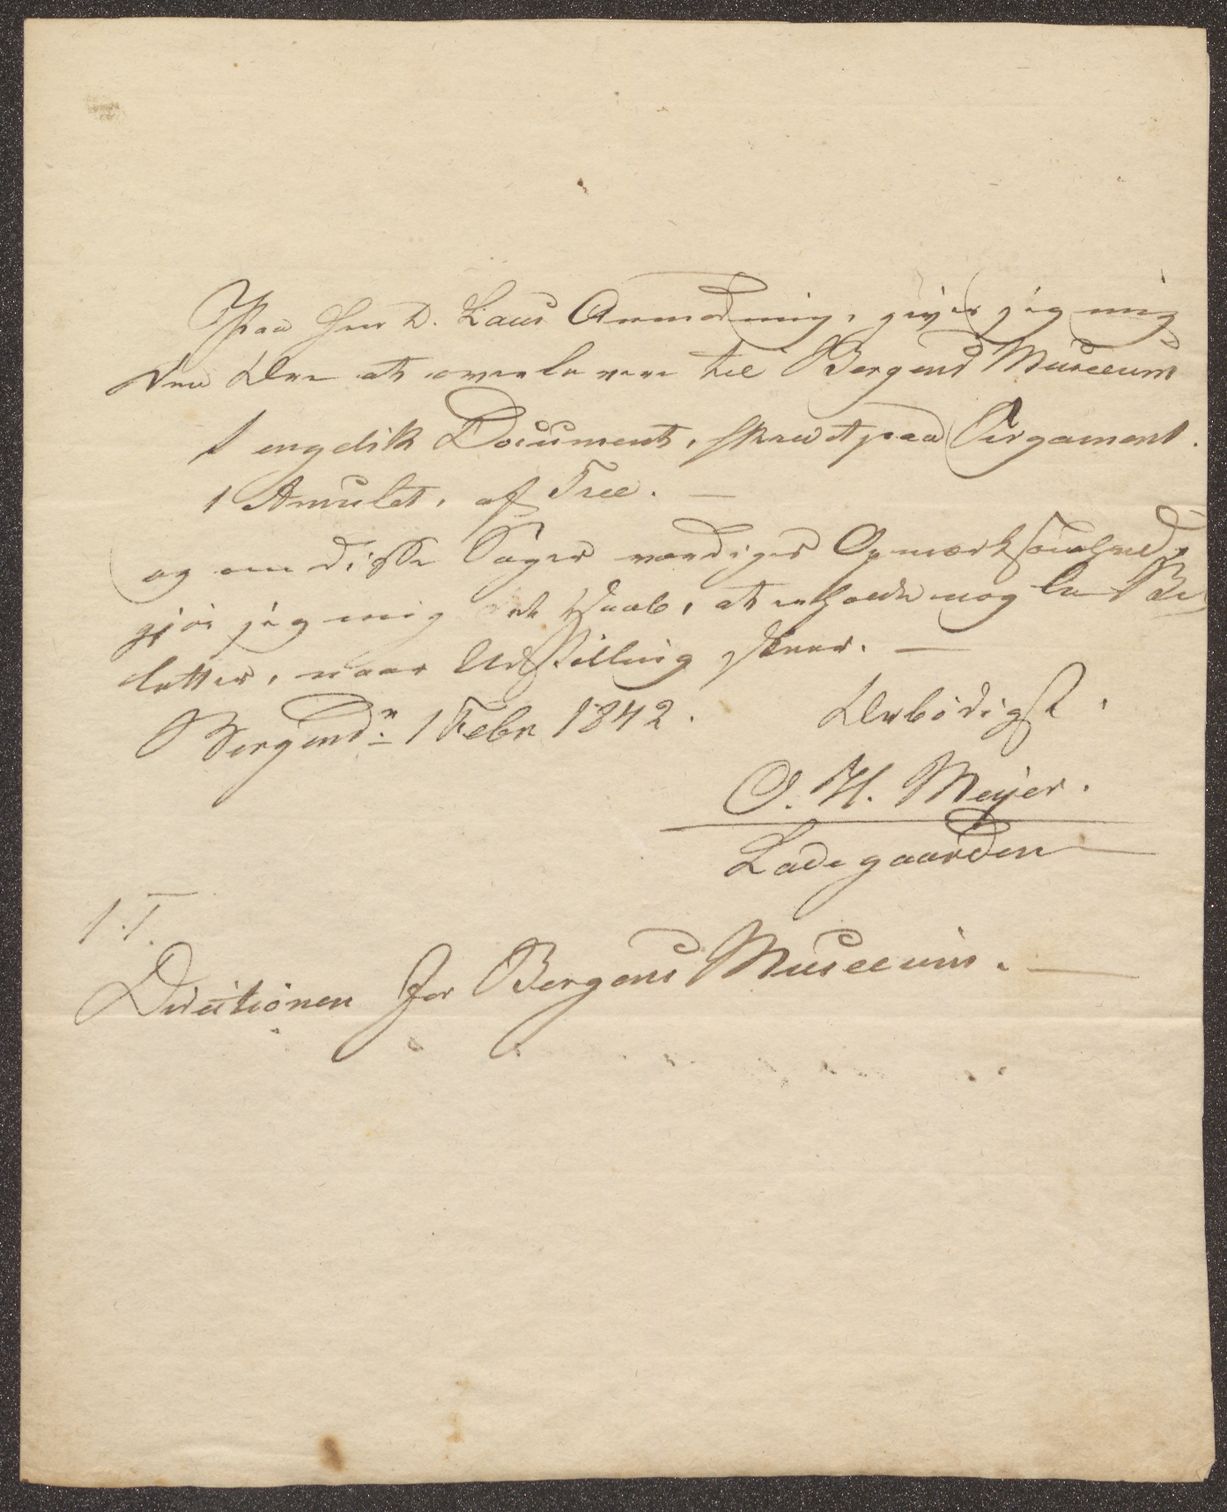 Paa Herr D. Laus Anmodning, giver jeg mig
den Ære at overlevere til Bergens Museeum
1 engelsk Document, skrevet paa Pergament.
1 Amulet, af Træe. —
og om disse Sager værdiges Opmærksomhed,
gjør jeg mig det Haab, at erholde nogle Bil
letter, naar Udstilling skeer. —
Bergen dn 1 Febr 1842. Ærbødigst.
O. H. Meijer.
Ladegaarden
Directionen for Bergens Museeum. —